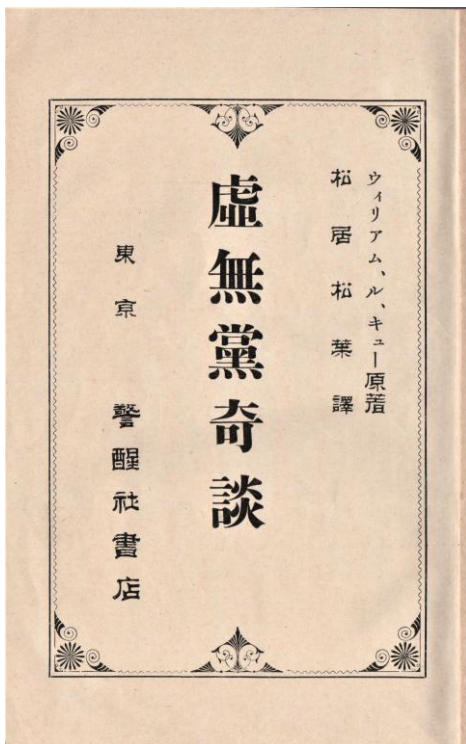 ウィリアム、ル、キュー原著
松居松葉譯
虛無黨奇談
東京 警醒社書店